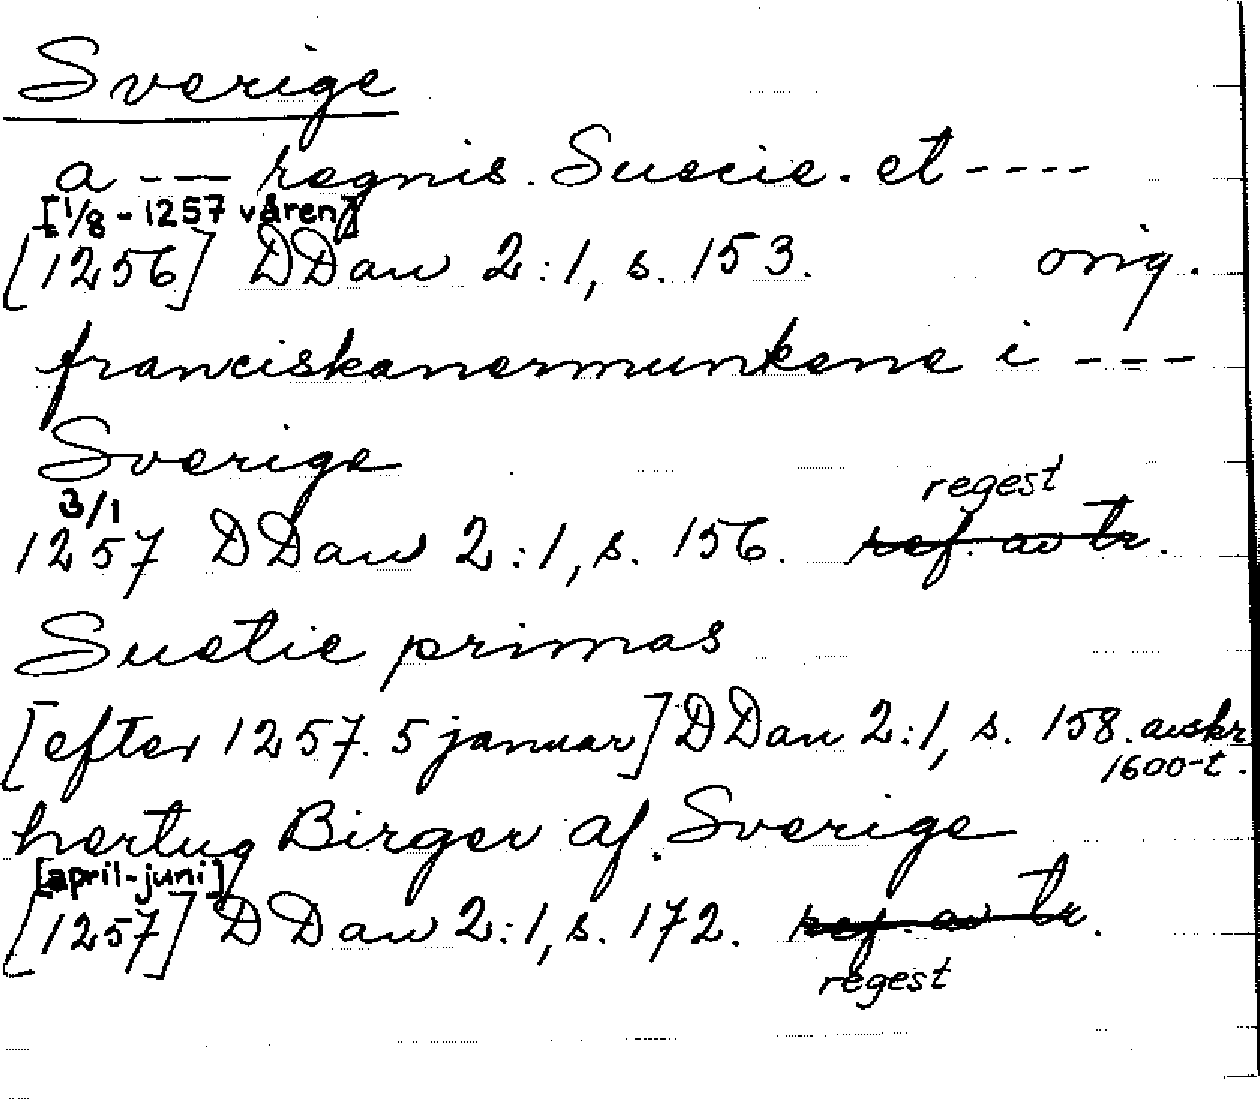 Sverige
a --- regnis. Suecie. et ----
[1/8 - 1257 våren]
[1256] DDan 2:1, s. 153. orig.
franciskanermunkene i ---
Sverige
3/1 regest
1257 DDan 2:1, s. 156. ref. av tr.
Suetie primas
[efter 1257. 5 januar] DDan 2:1, s. 158. avskr.
1600-t.
hertug Birger af. Sverige
[april-juni]
[1257] DDan 2:1, s. 172. ref. av tr.
regest